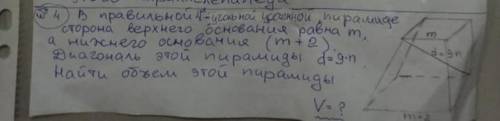 №4) В правильной 4-угольной усеченной пирамиде
сторона верхнего основания равна m,
а нижнего основания (m+2).
Диагональ этой пирамиды d=9·n
Найти объем этой пирамиды
V=?
m
d=9·n
m+2